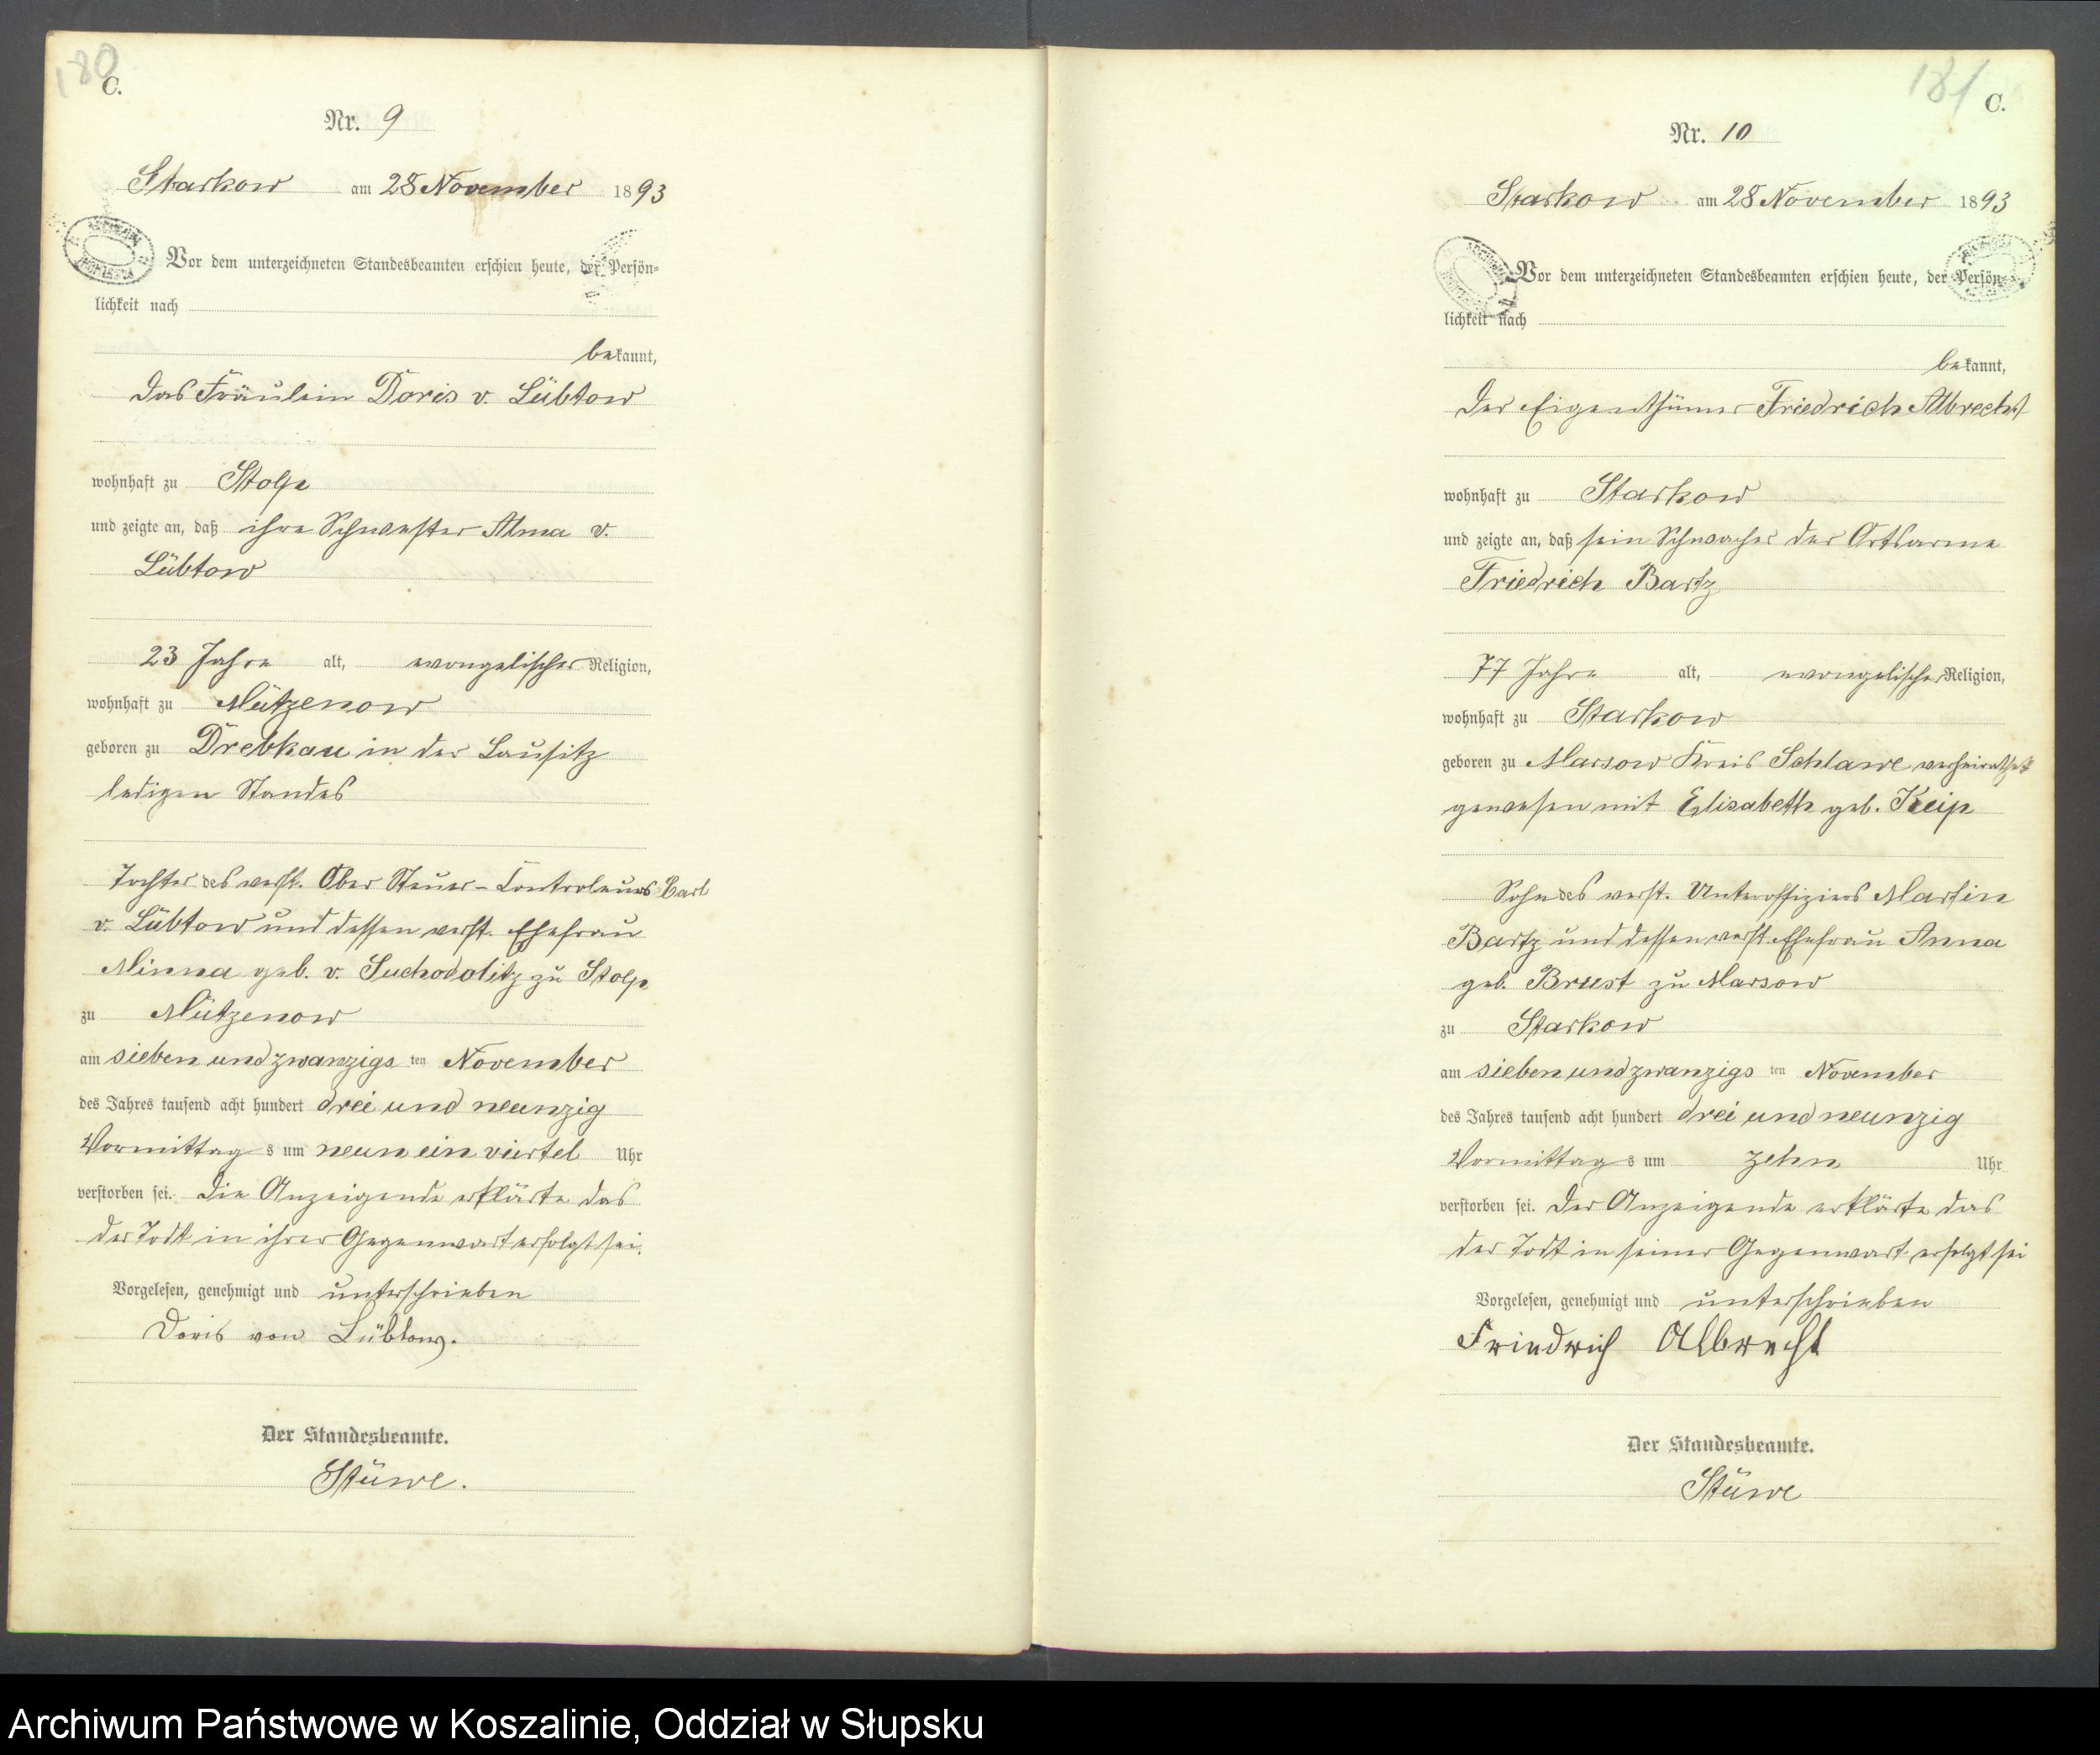 180
C.
Nr. 9
Starkow am 28 November 1893
Vor dem unterzeichneten Standesbeamten erschien heute, der Persön=
lichkeit nach
bekannt,
das Fräulein Doris v. Lübtow
wohnhaft zu Stolp
und zeigte an, daß ihre Schwester Alma v.
Lübtow
23 Jahre alt, evangelischer Religion,
wohnhaft zu Mützenow
geboren zu Drebkau in der Lausitz
ledigen Standes
Tochter des verst. Ober Steuer-Controleurs Carl
v. Lübtow und dessen verst. Ehefrau
Minna geb. v. Suchodolitz zu Stolp
zu Mützenow
am sieben und zwanzigs ten November
des Jahres tausend acht hundert drei und neunzig
Vormittag s um neun ein viertel Uhr
verstorben sei. Die Anzeigende erklärte das
der Todt in ihrer Gegenwart erfolgt sei.
Vorgelesen, genehmigt und unterschrieben
Doris von Lübtow.
Der Standesbeamte.
Stüwe.
181
C.
Nr. 10
Starkow am 28 November 1893
Vor dem unterzeichneten Standesbeamten erschien heute, der Persön=
lichkeit nach
bekannt,
der Eigenthümer Friedrich Albrecht
wohnhaft zu Starkow
und zeigte an, daß sein Schwager der Ortsarme
Friedrich Bartz
77 Jahre alt, evangelischer Religion,
wohnhaft zu Starkow
geboren zu Marsow Kreis Schlawe verheirathet
gewesen mit Elisabeth geb. Keip
Sohn des verst. Unteroffiziers Martin
Bartz und dessen verst. Ehefrau Anna
geb. Brust zu Marsow
zu Starkow
am sieben und zwanzigs ten November
des Jahres tausend acht hundert drei und neunzig
Vormittag s um zehn Uhr
verstorben sei. Der Anzeigende erklärte das
der Todt in seiner Gegenwart erfolgt sei
Vorgelesen, genehmigt und unterschrieben
Friedrich Albrecht
Der Standesbeamte.
Stüwe
Archiwum Państwowe w Koszalinie, Oddział w Słupsku